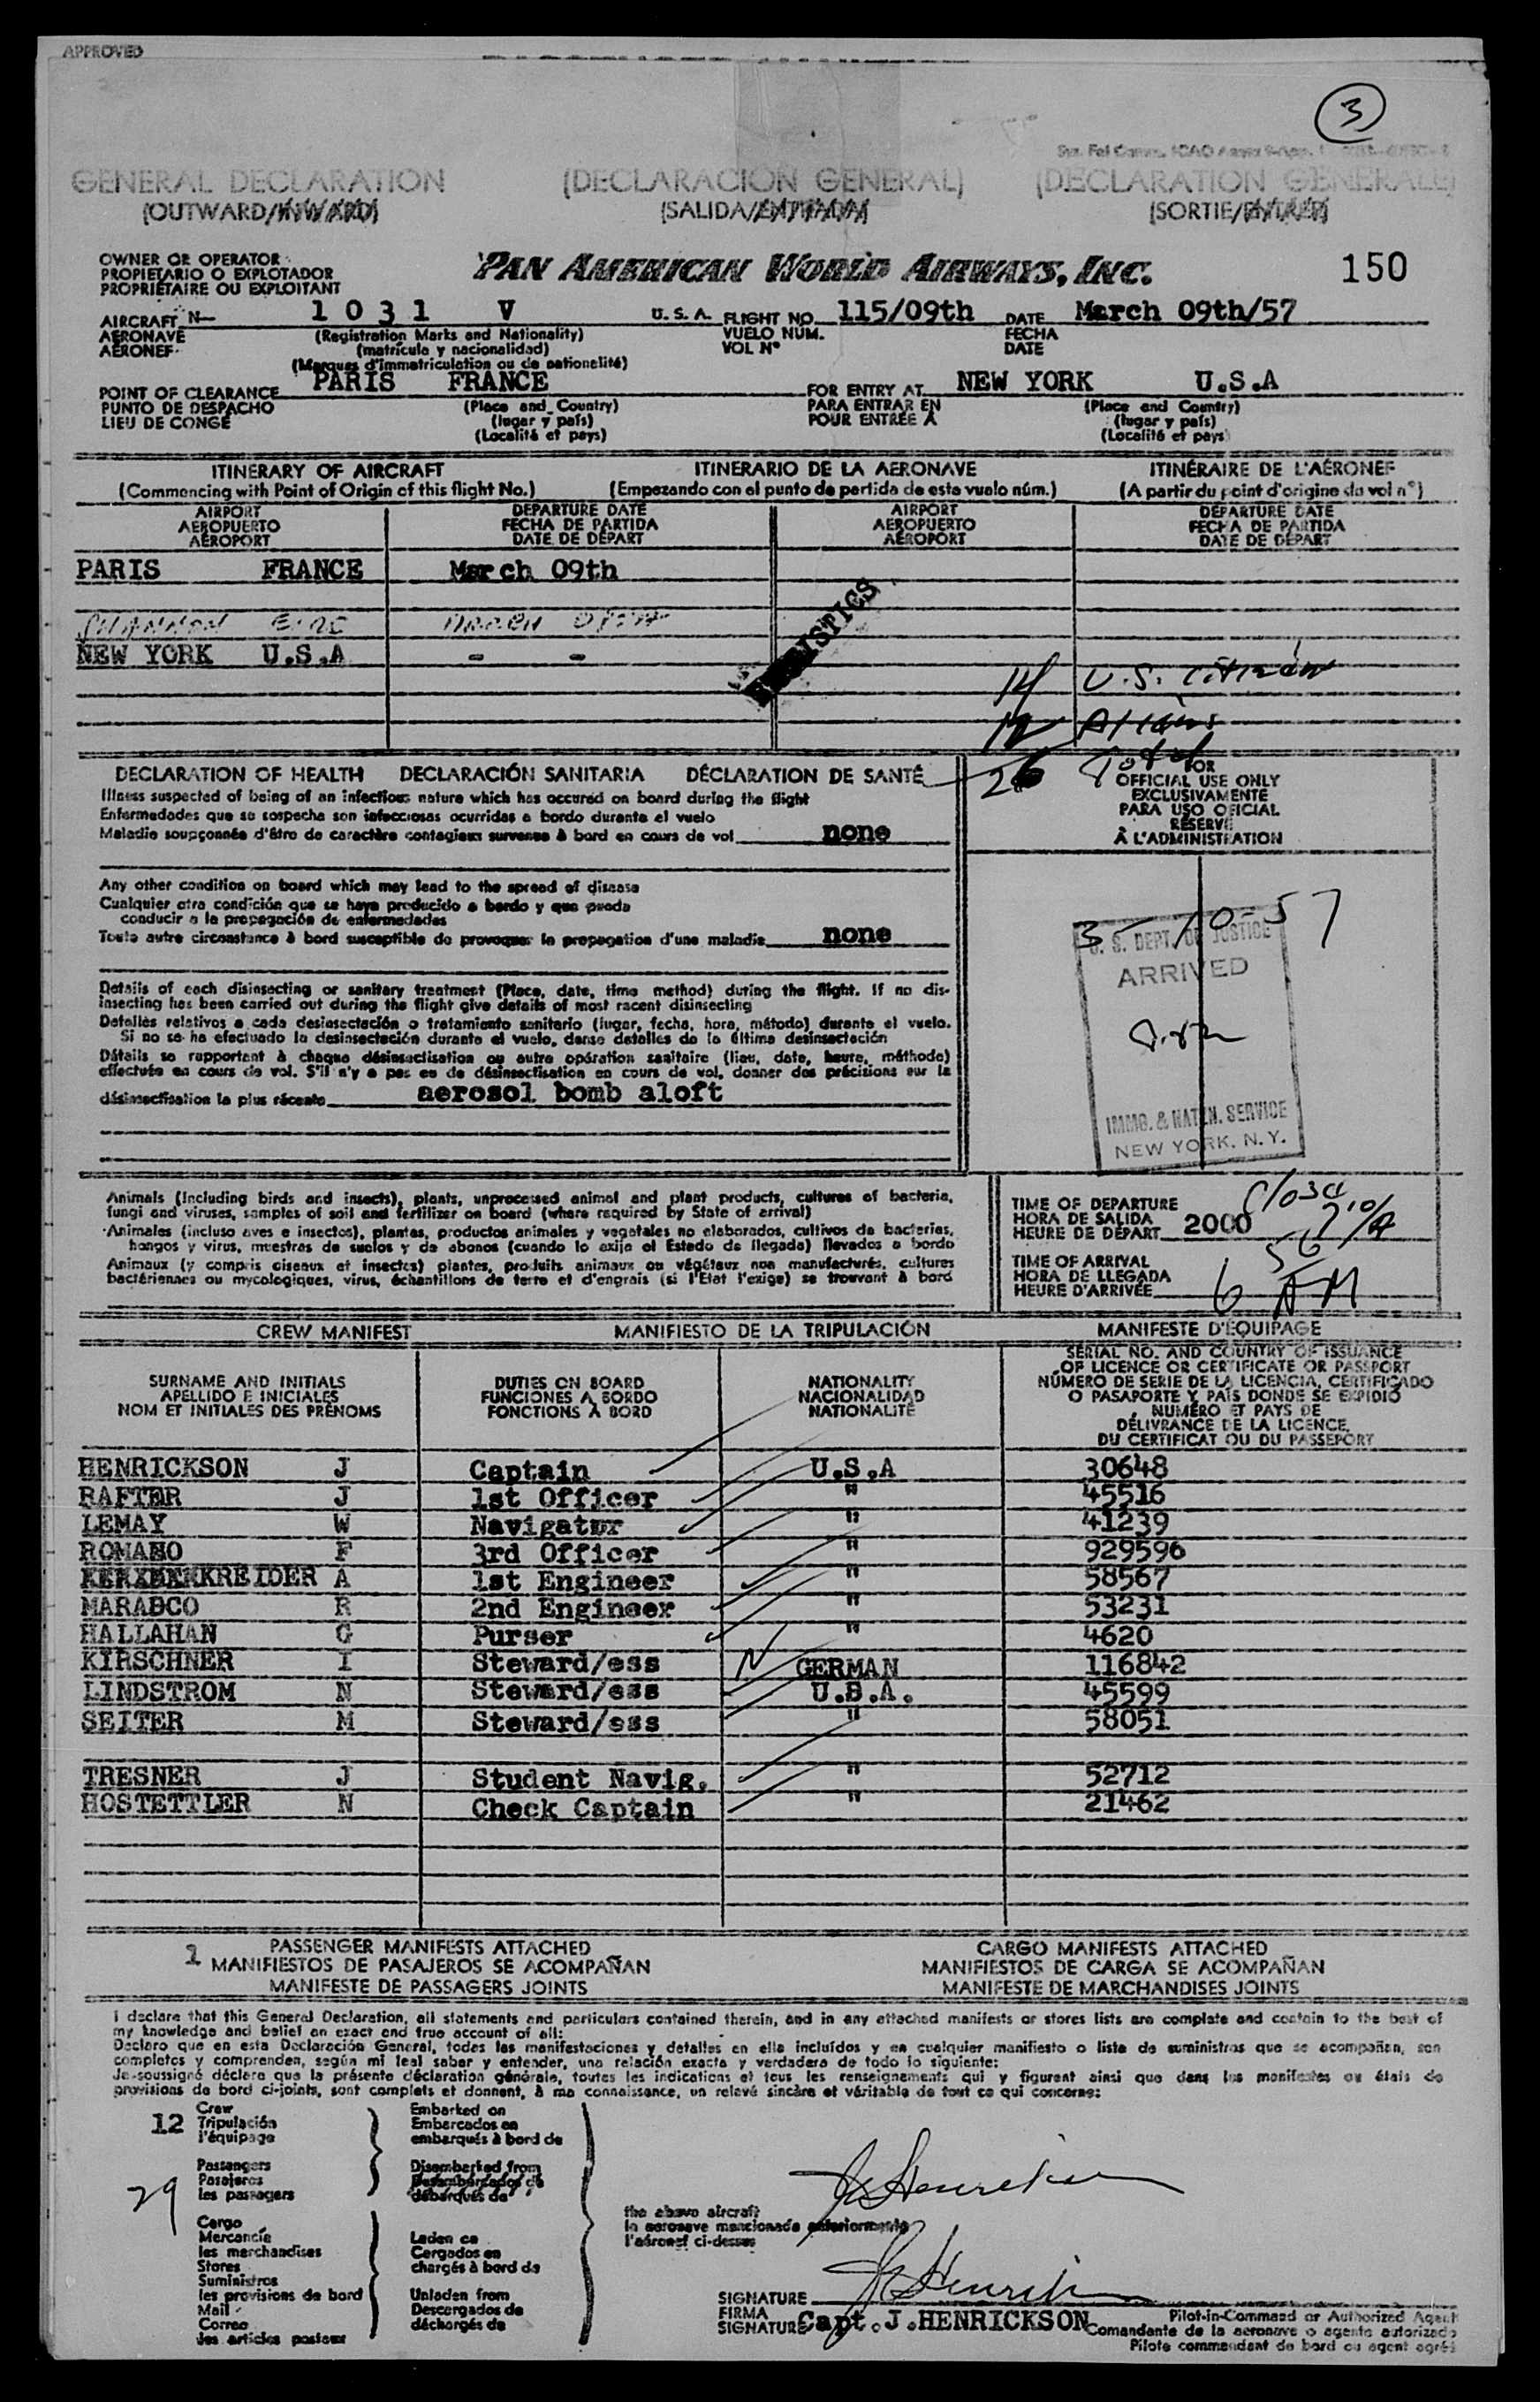 APPROVED
3
GENERAL DECLARATION (DECLARACION GENERAL) (DECLARATION GENERALE)
(OUTWARD/INWARD) (SALIDA/ENTRADA) (SORTIE/ENTRÉE)
OWNER OR OPERATOR
PROPIETARIO O EXPLOTADOR
PROPRIÉTAIRE OU EXPLOITANT
PAN AMERICAN WORLD AIRWAYS, INC. 150
AIRCRAFT N- 1 0 3 1 V U.S.A. FLIGHT NO. 115/09th DATE March 09th/57
AERONAVE (Registration Marks and Nationality) VUELO NÚM. FECHA
AÉRONEF (matrícula y nacionalidad) VOL Nº DATE
(Marques d'immatriculation ou de nationalité)
POINT OF CLEARANCE PARIS FRANCE FOR ENTRY AT NEW YORK U.S.A
PUNTO DE DESPACHO (Place and Country) PARA ENTRAR EN (Place and Country)
LIEU DE CONGÉ (lugar y país) POUR ENTRÉE À (lugar y país)
(Localité et pays) (Localité et pays)
ITINERARY OF AIRCRAFT ITINERARIO DE LA AERONAVE ITINÉRAIRE DE L'AÉRONEF
(Commencing with Point of Origin of this flight No.) (Empezando con el punto de partida de este vuelo núm.) (A partir du point d'origine du vol nº)
AIRPORT DEPARTURE DATE AIRPORT DEPARTURE DATE
AEROPUERTO FECHA DE PARTIDA AEROPUERTO FECHA DE PARTIDA
AÉROPORT DATE DE DÉPART AÉROPORT DATE DE DÉPART
PARIS FRANCE March 09th
SHANNON EIRE MARCH
NEW YORK U.S.A - -
14 U.S. Citizen
12 Aliens
26 Total
DECLARATION OF HEALTH DECLARACIÓN SANITARIA DÉCLARATION DE SANTÉ
FOR
OFFICIAL USE ONLY
EXCLUSIVAMENTE
PARA USO OFICIAL
RÉSERVÉ
À L'ADMINISTRATION
Illness suspected of being of an infectious nature which has occured on board during the flight
Enfermedades que se sospecha son infecciosas ocurridas a bordo durante el vuelo
Maladie soupçonnée d'être de caractère contagieux survenue à bord en cours de vol none
Any other condition on board which may lead to the spread of disease
Cualquier otra condición que se haya producido a bordo y que pueda
conducir a la propagación de enfermedades
Toute autre circonstance à bord susceptible de provoquer la propagation d'une maladie none
3-10-57
U. S. DEPT. OF JUSTICE
ARRIVED
IMMG. & NATZN. SERVICE
NEW YORK, N. Y.
Details of each disinsecting or sanitary treatment (Place, date, time method) during the flight. If no dis-
insecting has been carried out during the flight give details of most recent disinsecting
Detalles relativos a cada desinsectación o tratamiento sanitario (lugar, fecha, hora, método) durante el vuelo.
Si no se ha efectuado la desinsectación durante el vuelo, dense detalles de la última desinsectación
Détails se rapportant à chaque désinsectisation ou autre opération sanitaire (lieu, date, heure, méthode)
effectuée en cours de vol. S'il n'y a pas eu de désinsectisation en cours de vol, donner des précisions sur la
désinsectisation la plus récente aerosol bomb aloft
Animals (Including birds and insects), plants, unprocessed animal and plant products, cultures of bacteria,
fungi and viruses, samples of soil and fertilizer on board (where required by State of arrival)
Animales (incluso aves e insectos), plantas, productos animales y vegetales no elaborados, cultivos de bacterias,
hongos y virus, muestras de suelos y de abonos (cuando lo exija el Estado de llegada) llevados a bordo
Animaux (y compris oiseaux et insectes) plantes, produits animaux ou végétaux non manufacturés, cultures
bactériennes ou mycologiques, virus, échantillons de terre et d'engrais (si l'Etat l'exige) se trouvant à bord
TIME OF DEPARTURE
HORA DE SALIDA
HEURE DE DÉPART 2000
TIME OF ARRIVAL
HORA DE LLEGADA
HEURE D'ARRIVÉE 6 56 AM
CREW MANIFEST MANIFIESTO DE LA TRIPULACIÓN MANIFESTE D'ÉQUIPAGE
SURNAME AND INITIALS DUTIES ON BOARD NATIONALITY
APELLIDO E INICIALES FUNCIONES A BORDO NACIONALIDAD
NOM ET INITIALES DES PRÉNOMS FONCTIONS À BORD NATIONALITÉ
SERIAL NO. AND COUNTRY OF ISSUANCE
OF LICENCE OR CERTIFICATE OR PASSPORT
NÚMERO DE SERIE DE LA LICENCIA, CERTIFICADO
O PASAPORTE Y PAÍS DONDE SE EXPIDIÓ
NUMÉRO ET PAYS DE
DÉLIVRANCE DE LA LICENCE,
DU CERTIFICAT OU DU PASSEPORT
HENRICKSON J Captain U.S.A 30648
RAFTER J 1st Officer " 45516
LEMAY W Navigator " 41239
ROMANO F 3rd Officer " 929596
KREIDER A 1st Engineer " 58567
MARABCO R 2nd Engineer " 53231
HALLAHAN G Purser " 4620
KIRSCHNER I Steward/ess N GERMAN 116842
LINDSTROM N Steward/ess U.S.A. 45599
SEITER M Steward/ess " 58051
TRESNER J Student Navig. " 52712
HOSTETTLER N Check Captain " 21462
1 PASSENGER MANIFESTS ATTACHED CARGO MANIFESTS ATTACHED
MANIFIESTOS DE PASAJEROS SE ACOMPAÑAN MANIFIESTOS DE CARGA SE ACOMPAÑAN
MANIFESTE DE PASSAGERS JOINTS MANIFESTE DE MARCHANDISES JOINTS
I declare that this General Declaration, all statements and particulars contained therein, and in any attached manifests or stores lists are complete and contain to the best of
my knowledge and belief an exact and true account of all:
Declaro que en esta Declaración General, todas las manifestaciones y detalles en ella incluídos y en cualquier manifiesto o lista de suministros que se acompañan, son
completos y comprenden, según mi leal saber y entender, una relación exacta y verdadera de todo lo siguiente:
Je soussigné déclare que la présente déclaration générale, toutes les indications et tous les renseignements qui y figurent ainsi que dans les manifestes ou états de
provisions de bord ci-joints, sont complets et donnent, à ma connaissance, un relevé sincère et véritable de tout ce qui concerne:
Crew Embarked on
12 Tripulación Embarcados en
l'équipage embarqués à bord de
Passengers Disembarked from
29 Pasajeros Desembarcados de
les passagers débarqués de
Cargo
Mercancía Laden on
les marchandises Cargados en
Stores chargés à bord de
Suministros
les provisions de bord Unladen from
Mail Descargados de
Correo déchargés de
les articles postaux
the above aircraft
la aeronave mencionada anteriormente
l'aéronef ci-dessus
J Henrickson
J Henrickson
SIGNATURE
FIRMA
SIGNATURE Capt. J.HENRICKSON
Pilot-in-Command or Authorized Agent
Comandante de la aeronave o agente autorizado
Pilote commandant de bord ou agent agréé